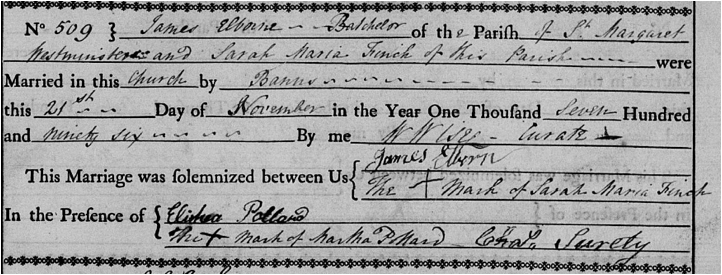 No 509 } James Elborne - - Batchelor of the Parish of St Margaret
Westminster and Sarah Maria Finch of this Parish were
Married in this Church by Banns
this 21st Day of November in the Year One Thousand Seven Hundred
and ninety six By me W Wise - Curate
This Marriage was solemnized between Us { James Elborn
The + Mark of Sarah Maria Finch
In the Presence of { Elishea Pollard
The + Mark of Martha Pollard Surety